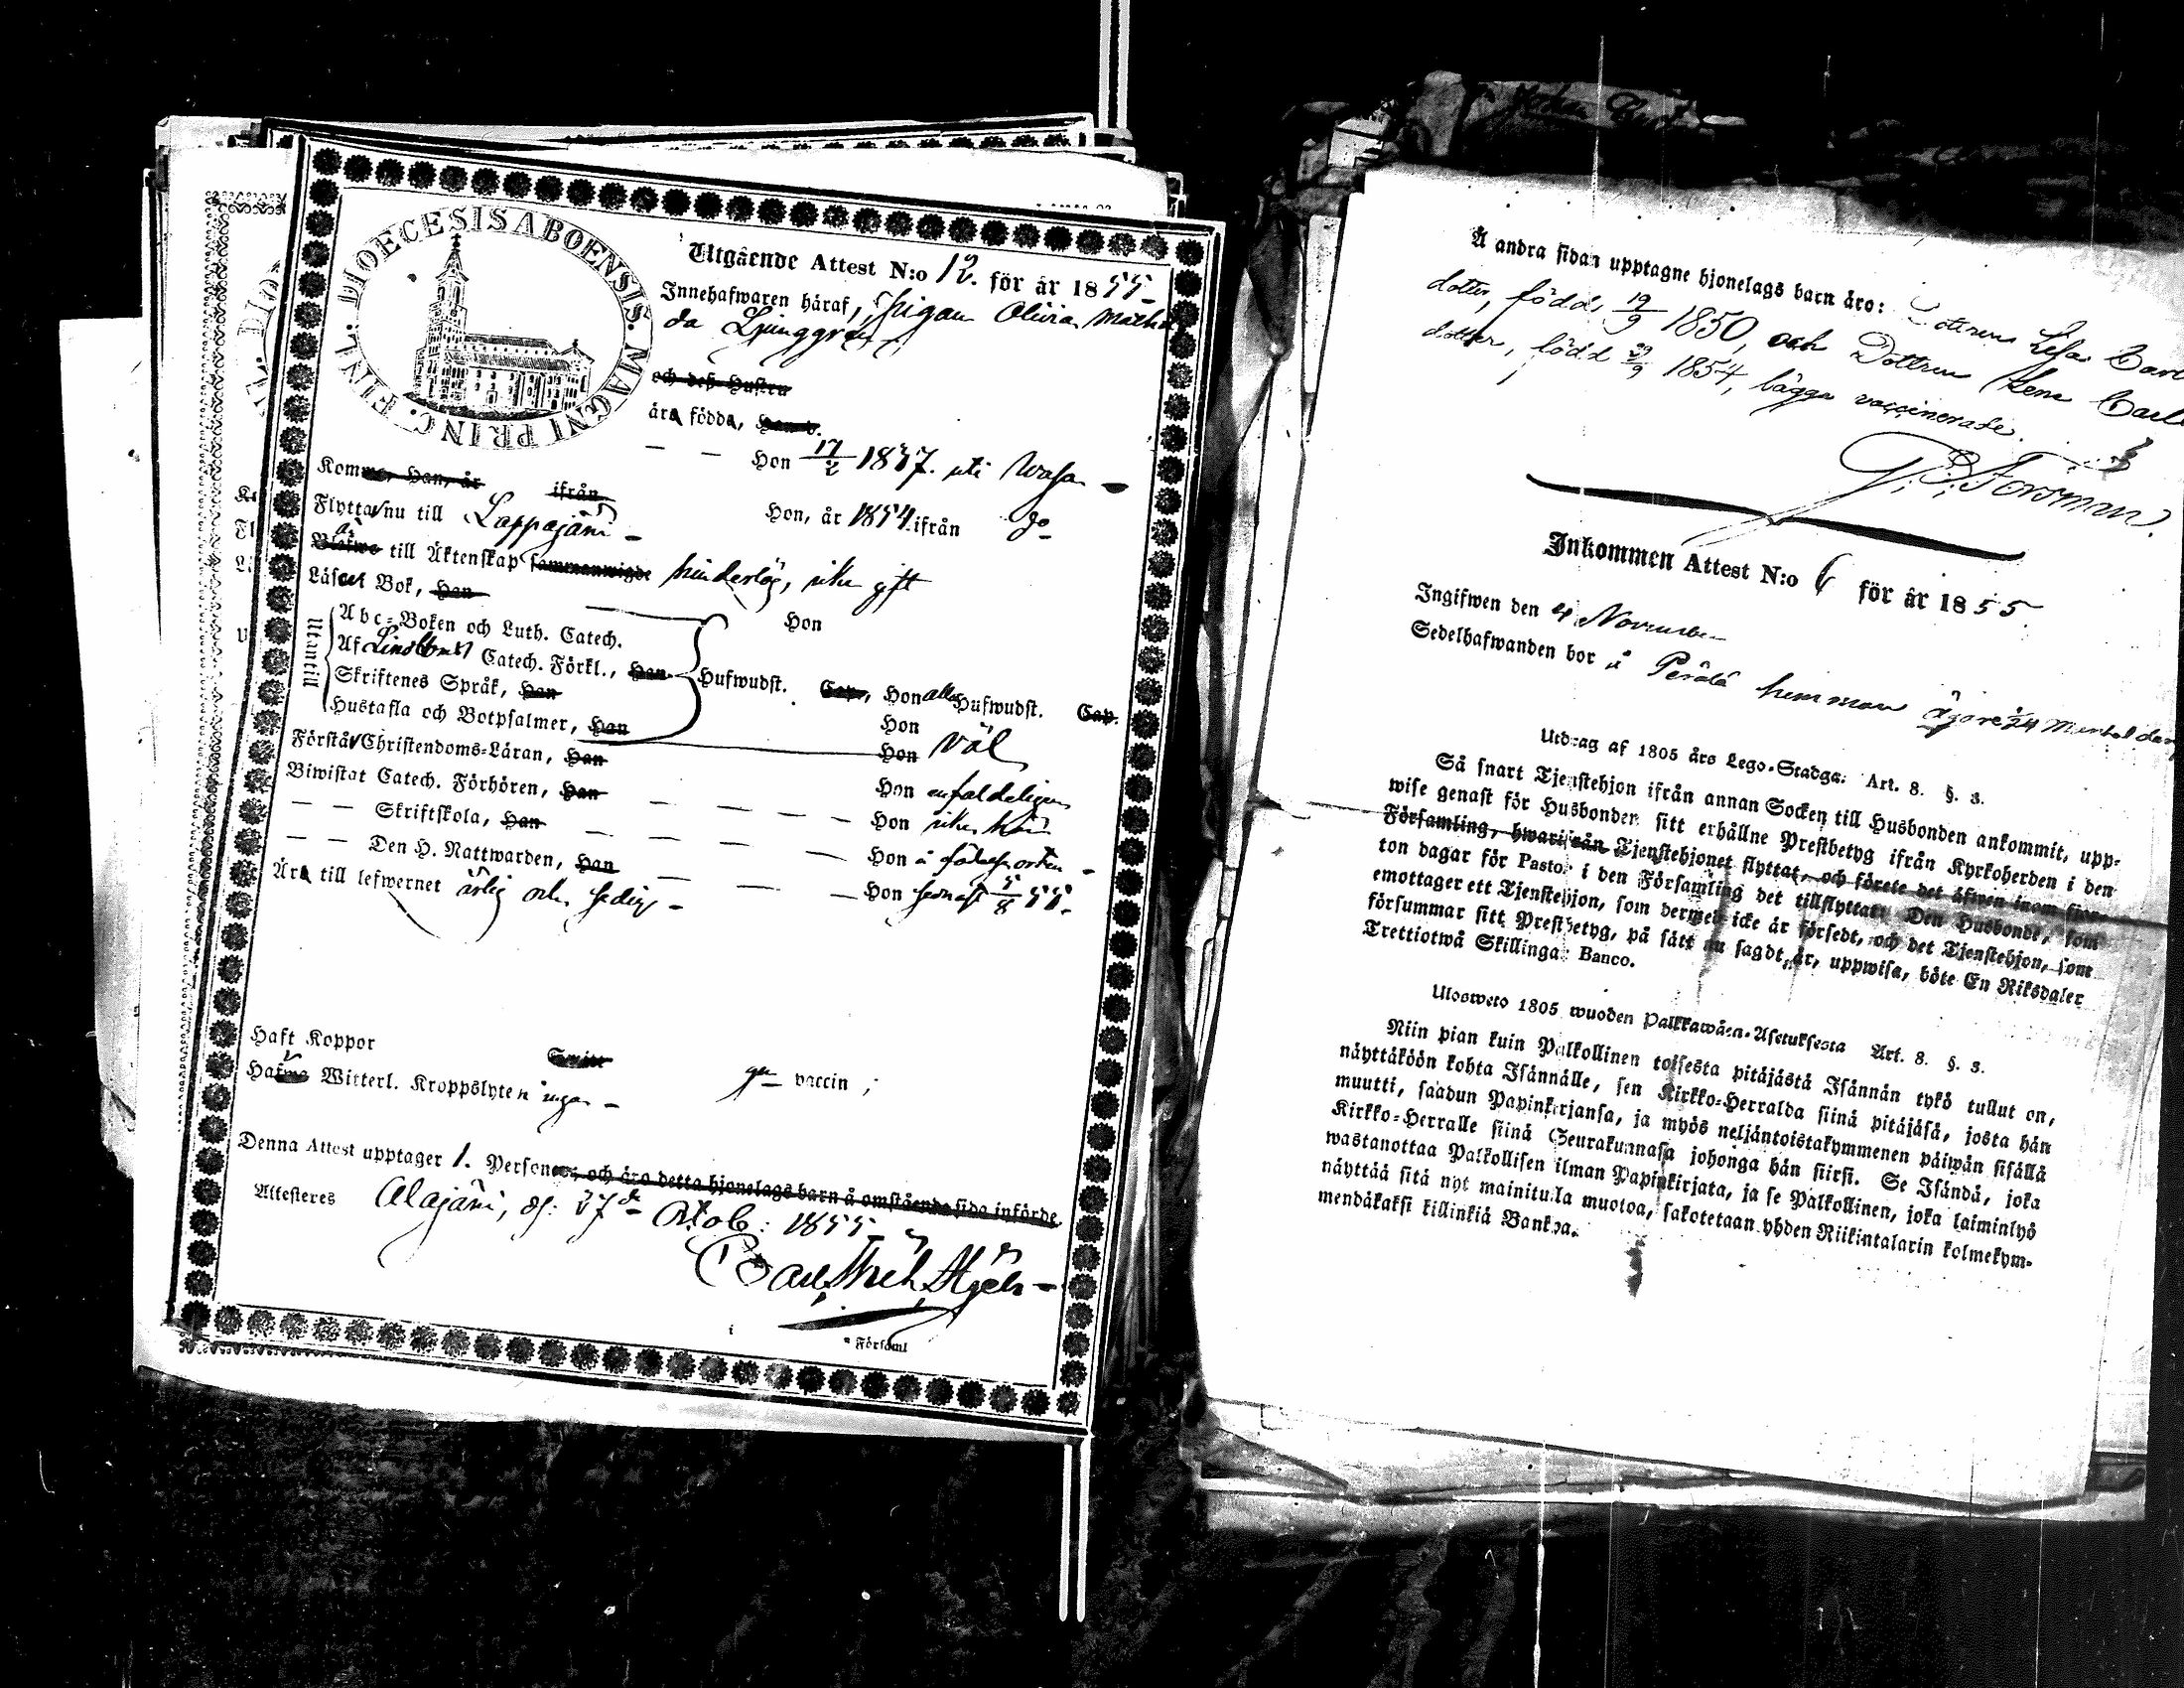 DIOECESIS ABOENSIS. MAGNI PRINC. FINL.
Utgående Attest N:o 12. för år 1855
Innehafwaren häraf, Pigan Olivia Mathil
da Ljunggren
och deß Hustru
äro födda, Han d.
Hon 17/2 1837. uti Wasa
Kommo, Han, år ifrån
Hon, år 1854 ifrån do
Flyttar nu till Lappajärvi
Blefwe till Äktenskap sammanwigde hinderlös, icke gift
Läser Bok, Han
Hon
Utantill
Abc-Boken och Luth. Catech.
Af Lindbms Catech. Förkl., Han Hufwudst. Cap., Hon alla Hufwudst. Cap.
Skriftenes Språk, Han
Hon
Hustafla och Botpsalmer, Han
Hon väl
Förstår Christendoms-Läran, Han
Hon enfaldeligen
Biwistat Catech. Förhören, Han
Hon icke här
Skriftskola, Han
Hon å födelseorten
Den H. Nattwarden, Han
Hon senast 5/8 55
Äro till lefwernet ärlig och sedig
Haft Koppor
gn vaccin ;
Hafwa Witterl. Kroppslyten inga
Denna Attest upptager 1. Personer, och äro detta hjonelags barn å omstående sida införde.
Attesteres Alajärvi, d. 27de Octob: 1855
i Församl
Å andra sidan upptagne hjonelags barn äro: Dottren Lisa Carls
dotter, född 19/9 1850, och Dottren Lena Carls
dotter, född 29/9 1854, bägge vaccinerade.
G. Forsman
Inkommen Attest N:o 6 för år 1855.
Ingifwen den 4 November
Sedelhafwanden bor å Perälä hemman ägare 5/24 Mantal der
Utdrag af 1805 års Lego-Stadga: Art. 8. §. 3.
Så snart Tjenstehjon ifrån annan Socken till Husbonden ankommit, upp-
wise genast för Husbonden sitt erhållne Prestbetyg ifrån Kyrkoherden i den
Församling, hwarifrån Tjenstehjonet flyttat, och förete det äfwen inom fjor-
ton dagar för Pastor i den Församling det tillflyttat. Den Husbonde, som
emottager ett Tjenstehjon, som dermed icke är försedt, och det Tjenstehjon, som
försummar sitt Prestbetyg, på sätt nu sagdt är, uppwisa, böte En Riksdaler
Trettiotwå Skillingar Banco.
Ulosweto 1805 wuoden Palkkawäen-Asetuksesta Art. 8. §. 3.
Niin pian kuin Palkollinen toisesta pitäjästä Isännän tykö tullut on,
näyttäköön kohta Isännälle, sen Kirkko-Herralda siinä pitäjäsä, josta hän
muutti, saadun Papinkirjansa, ja myös neljäntoistakymmenen päiwän sisällä
Kirkko-Herralle siinä Seurakunnasa johonga hän siirsi. Se Isändä, joka
wastanottaa Palkollisen ilman Papinkirjata, ja se Palkollinen, joka laiminlyö
näyttää sitä nyt mainitulla muotoa, sakotetaan yhden Riikintalarin kolmekym-
mendäkaksi killinkiä Bankoa.